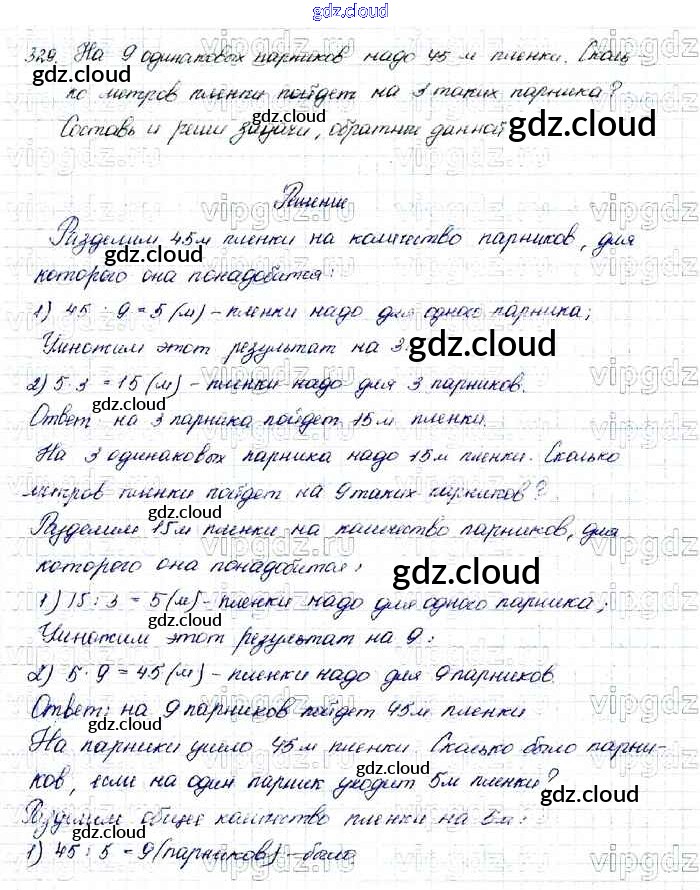 gdz.cloud
329. На 9 одинаковых парников надо 45 м пленки. Сколь-
ко метров пленки пойдет на 3 таких парника?
Составь и реши задачи, обратные данной
gdz.cloud
Решение
Разделим 45м пленки на количество парников, для
которого она понадобится:
gdz.cloud
1) 45 : 9 = 5 (м) – пленки надо для одного парника;
Умножим этот результат на 3
gdz.cloud
2) 5 · 3 = 15 (м) – пленки надо для 3 парников.
gdz.cloud
Ответ: на 3 парника пойдет 15м пленки.
На 3 одинаковых парника надо 15м пленки. Сколько
метров пленки пойдет на 9 таких парников?
gdz.cloud
Разделим 15м пленки на количество парников, для
которого она понадобится:
gdz.cloud
1) 15 : 3 = 5 (м) – пленки надо для одного парника;
Умножим этот результат на 9:
gdz.cloud
2) 5 · 9 = 45 (м) – пленки надо для 9 парников.
Ответ: на 9 парников пойдет 45м пленки
gdz.cloud
На парники ушло 45м пленки. Сколько было парни-
ков, если на один парник уходит 5м пленки?
gdz.cloud
Разделим общее количество пленки на 5м:
gdz.cloud
1) 45 : 5 = 9 (парников) – было
gdz.cloud